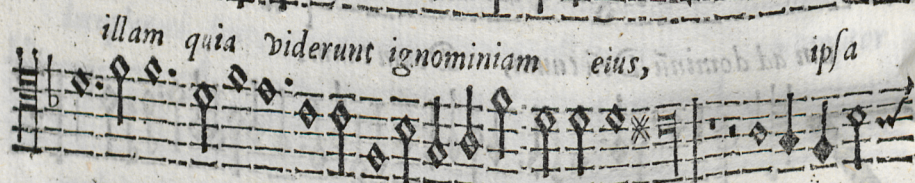 illam quia viderunt ignominiam eius, ipſa